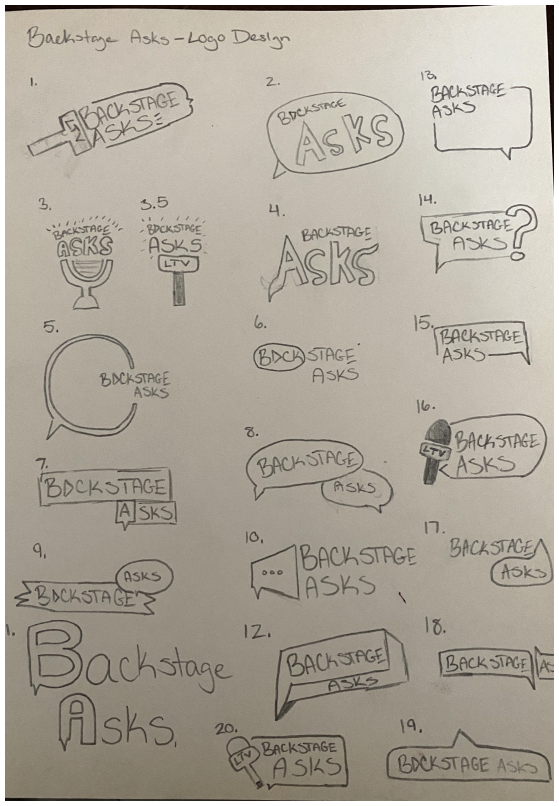 Backstage Asks - Logo Design
1.
BACKSTAGE
ASKS
2.
BACKSTAGE
ASKS
13.
BACKSTAGE
ASKS
3.
BACKSTAGE
ASKS
3.5
BACKSTAGE
ASKS
LTV
4.
BACKSTAGE
ASKS
14.
BACKSTAGE
ASKS?
5.
BACKSTAGE
ASKS
6.
BACKSTAGE
ASKS
15.
BACKSTAGE
ASKS
7.
BACKSTAGE
ASKS
8.
BACKSTAGE
ASKS
16.
LTV
BACKSTAGE
ASKS
9.
ASKS
BACKSTAGE
10.
BACKSTAGE
ASKS
17.
BACKSTAGE
ASKS
1.
Backstage
Asks
12.
BACKSTAGE
ASKS
18.
BACKSTAGE AS
20.
LTV
BACKSTAGE
ASKS
19.
BACKSTAGE ASKS